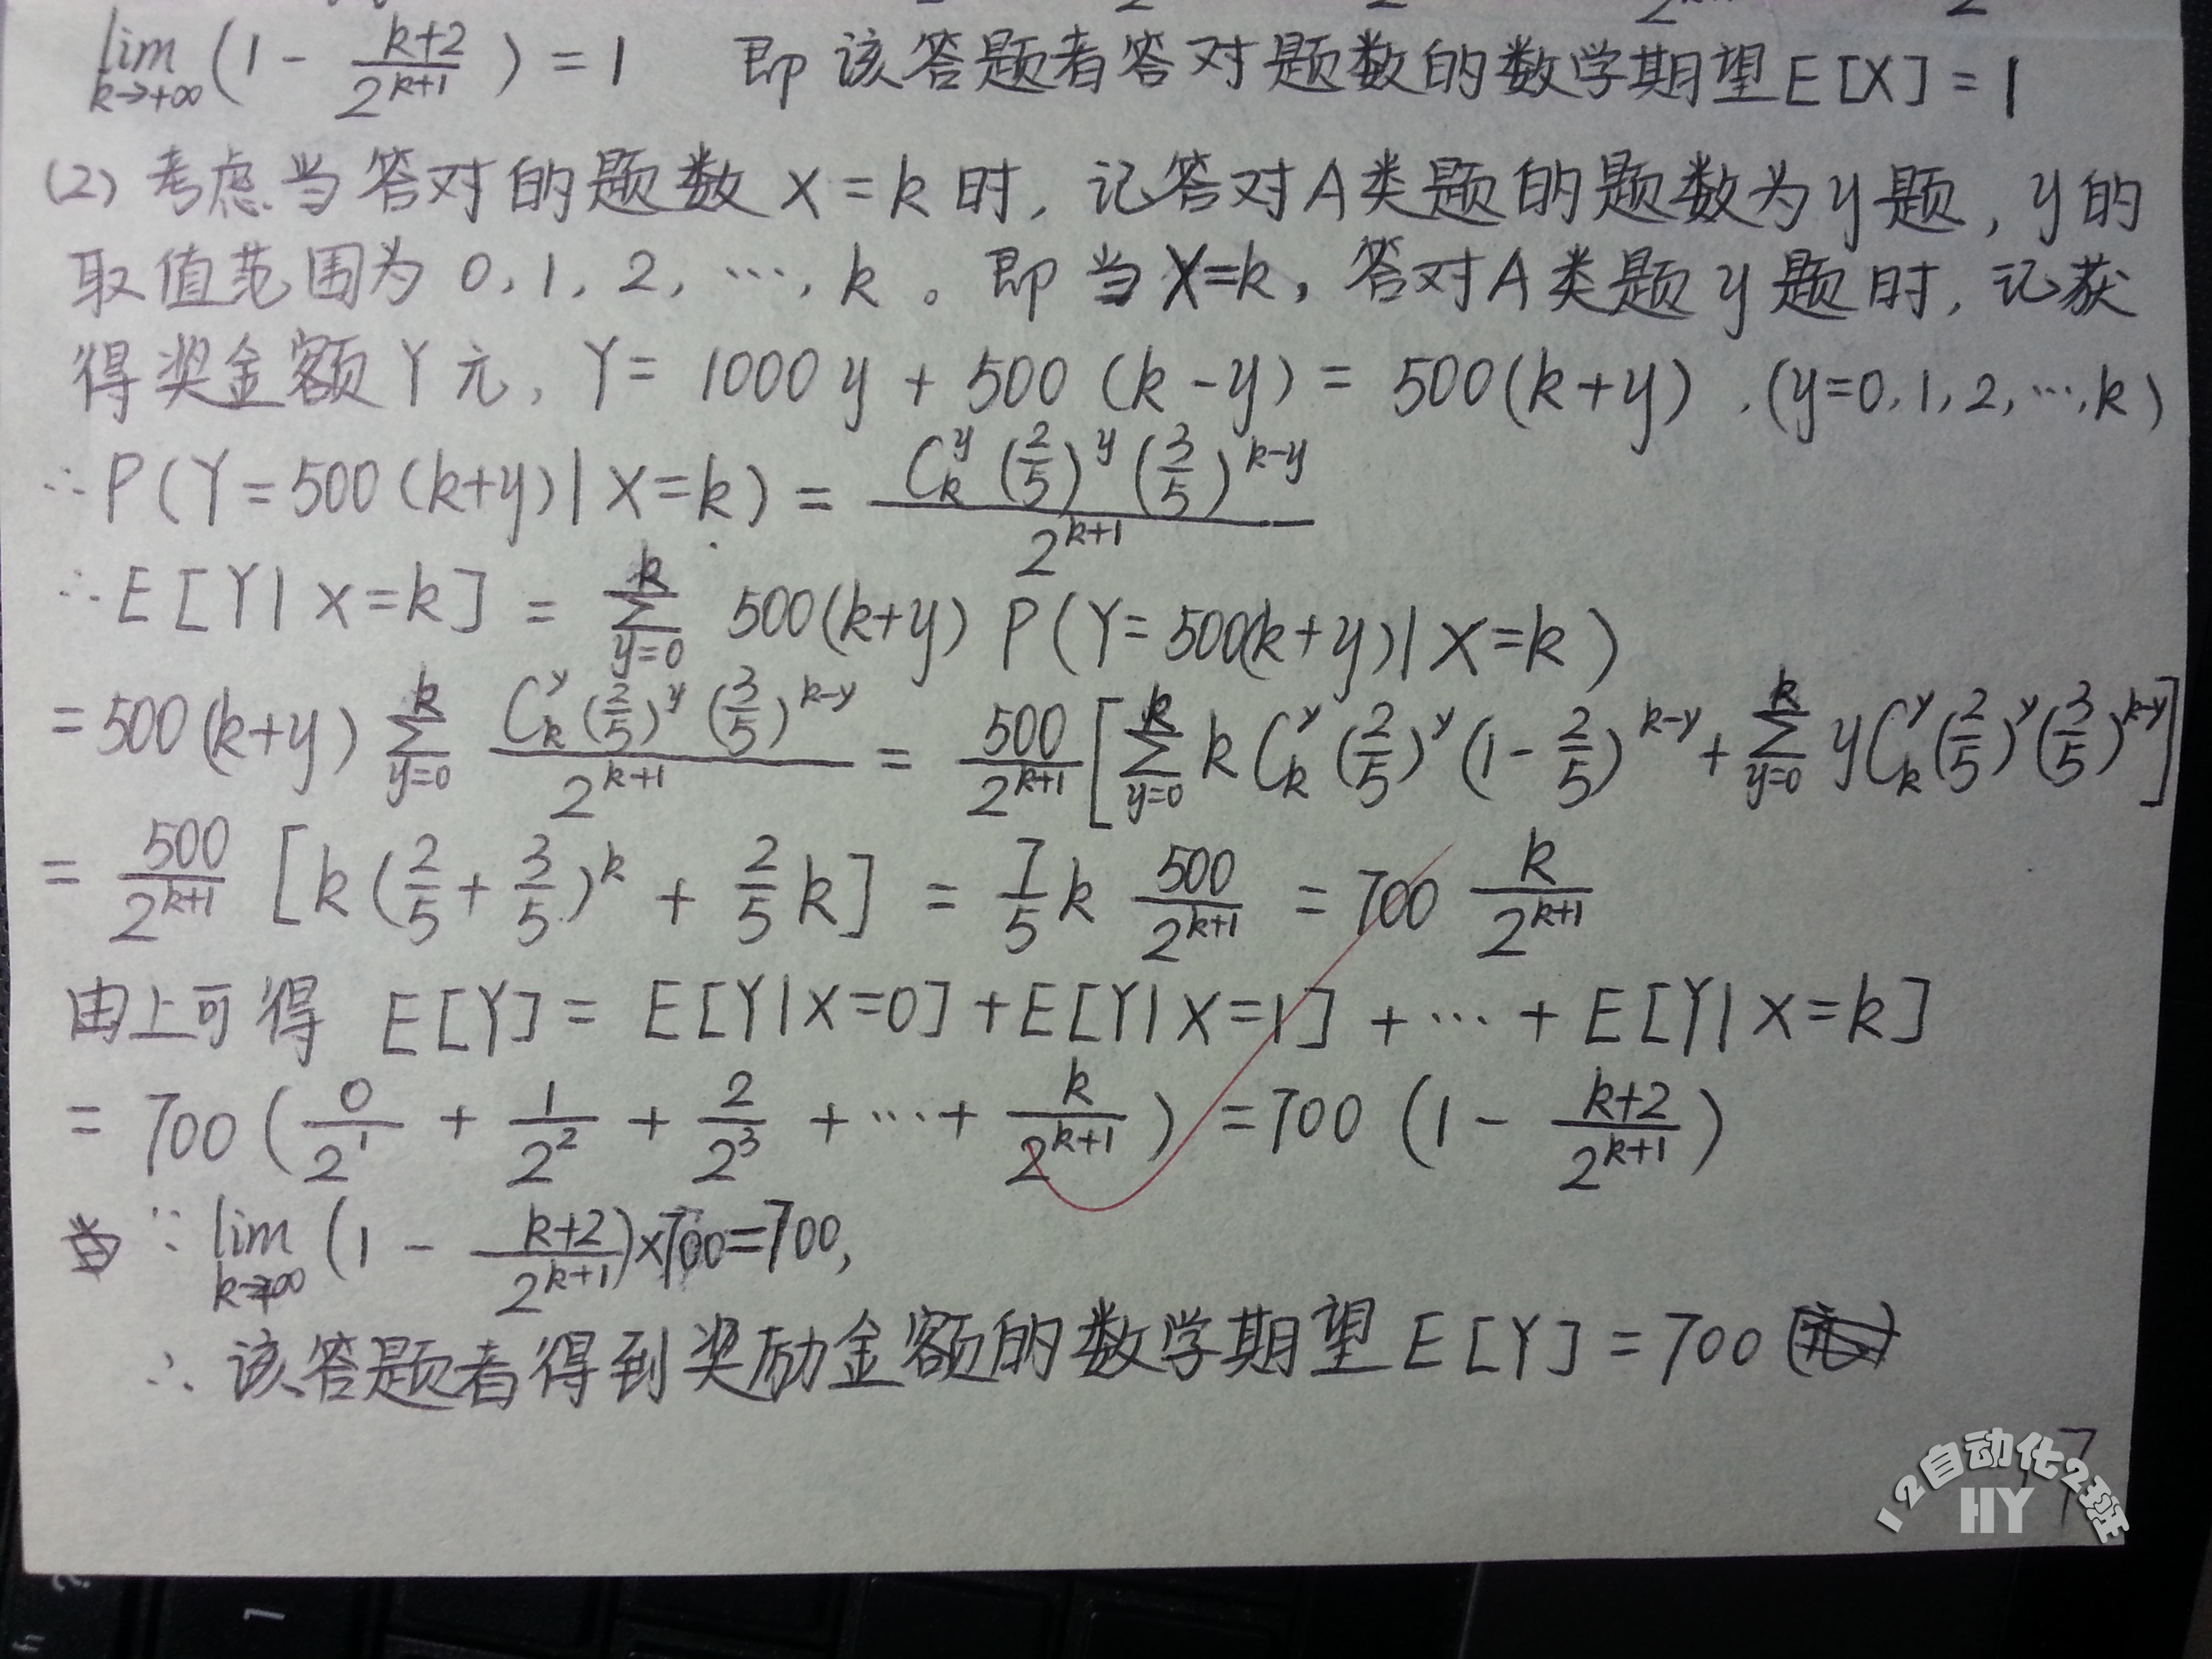 lim k→+∞ (1 - (k+2)/2^(k+1)) = 1 即该答题者答对题数的数学期望E[X]=1
(2) 考虑当答对的题数X=k时, 记答对A类题的题数为y题, y的
取值范围为 0, 1, 2, …, k 。即当X=k, 答对A类题y题时, 记获
得奖金额Y元, Y = 1000y + 500(k-y) = 500(k+y) . (y=0,1,2,…,k)
∴P(Y=500(k+y)|X=k) = C_k^y (2/5)^y (3/5)^(k-y) / 2^(k+1)
∴E[Y|X=k] = ∑_{y=0}^{k} 500(k+y) P(Y=500(k+y)|X=k)
=500(k+y) ∑_{y=0}^{k} C_k^y (2/5)^y (3/5)^(k-y) / 2^(k+1) = 500/2^(k+1) [∑_{y=0}^{k} k C_k^y (2/5)^y (1-2/5)^(k-y) + ∑_{y=0}^{k} y C_k^y (2/5)^y (3/5)^(k-y)]
= 500/2^(k+1) [k(2/5 + 3/5)^k + 2/5 k] = 7/5 k 500/2^(k+1) = 700 k/2^(k+1)
由上可得 E[Y] = E[Y|X=0] + E[Y|X=1] + … + E[Y|X=k]
= 700 (0/2^1 + 1/2^2 + 2/2^3 + … + k/2^(k+1)) = 700 (1 - (k+2)/2^(k+1))
∵ lim k→∞ (1 - (k+2)/2^(k+1))×700=700,
∴ 该答题者得到奖励金额的数学期望E[Y]=700
7
12自动化2班
HY